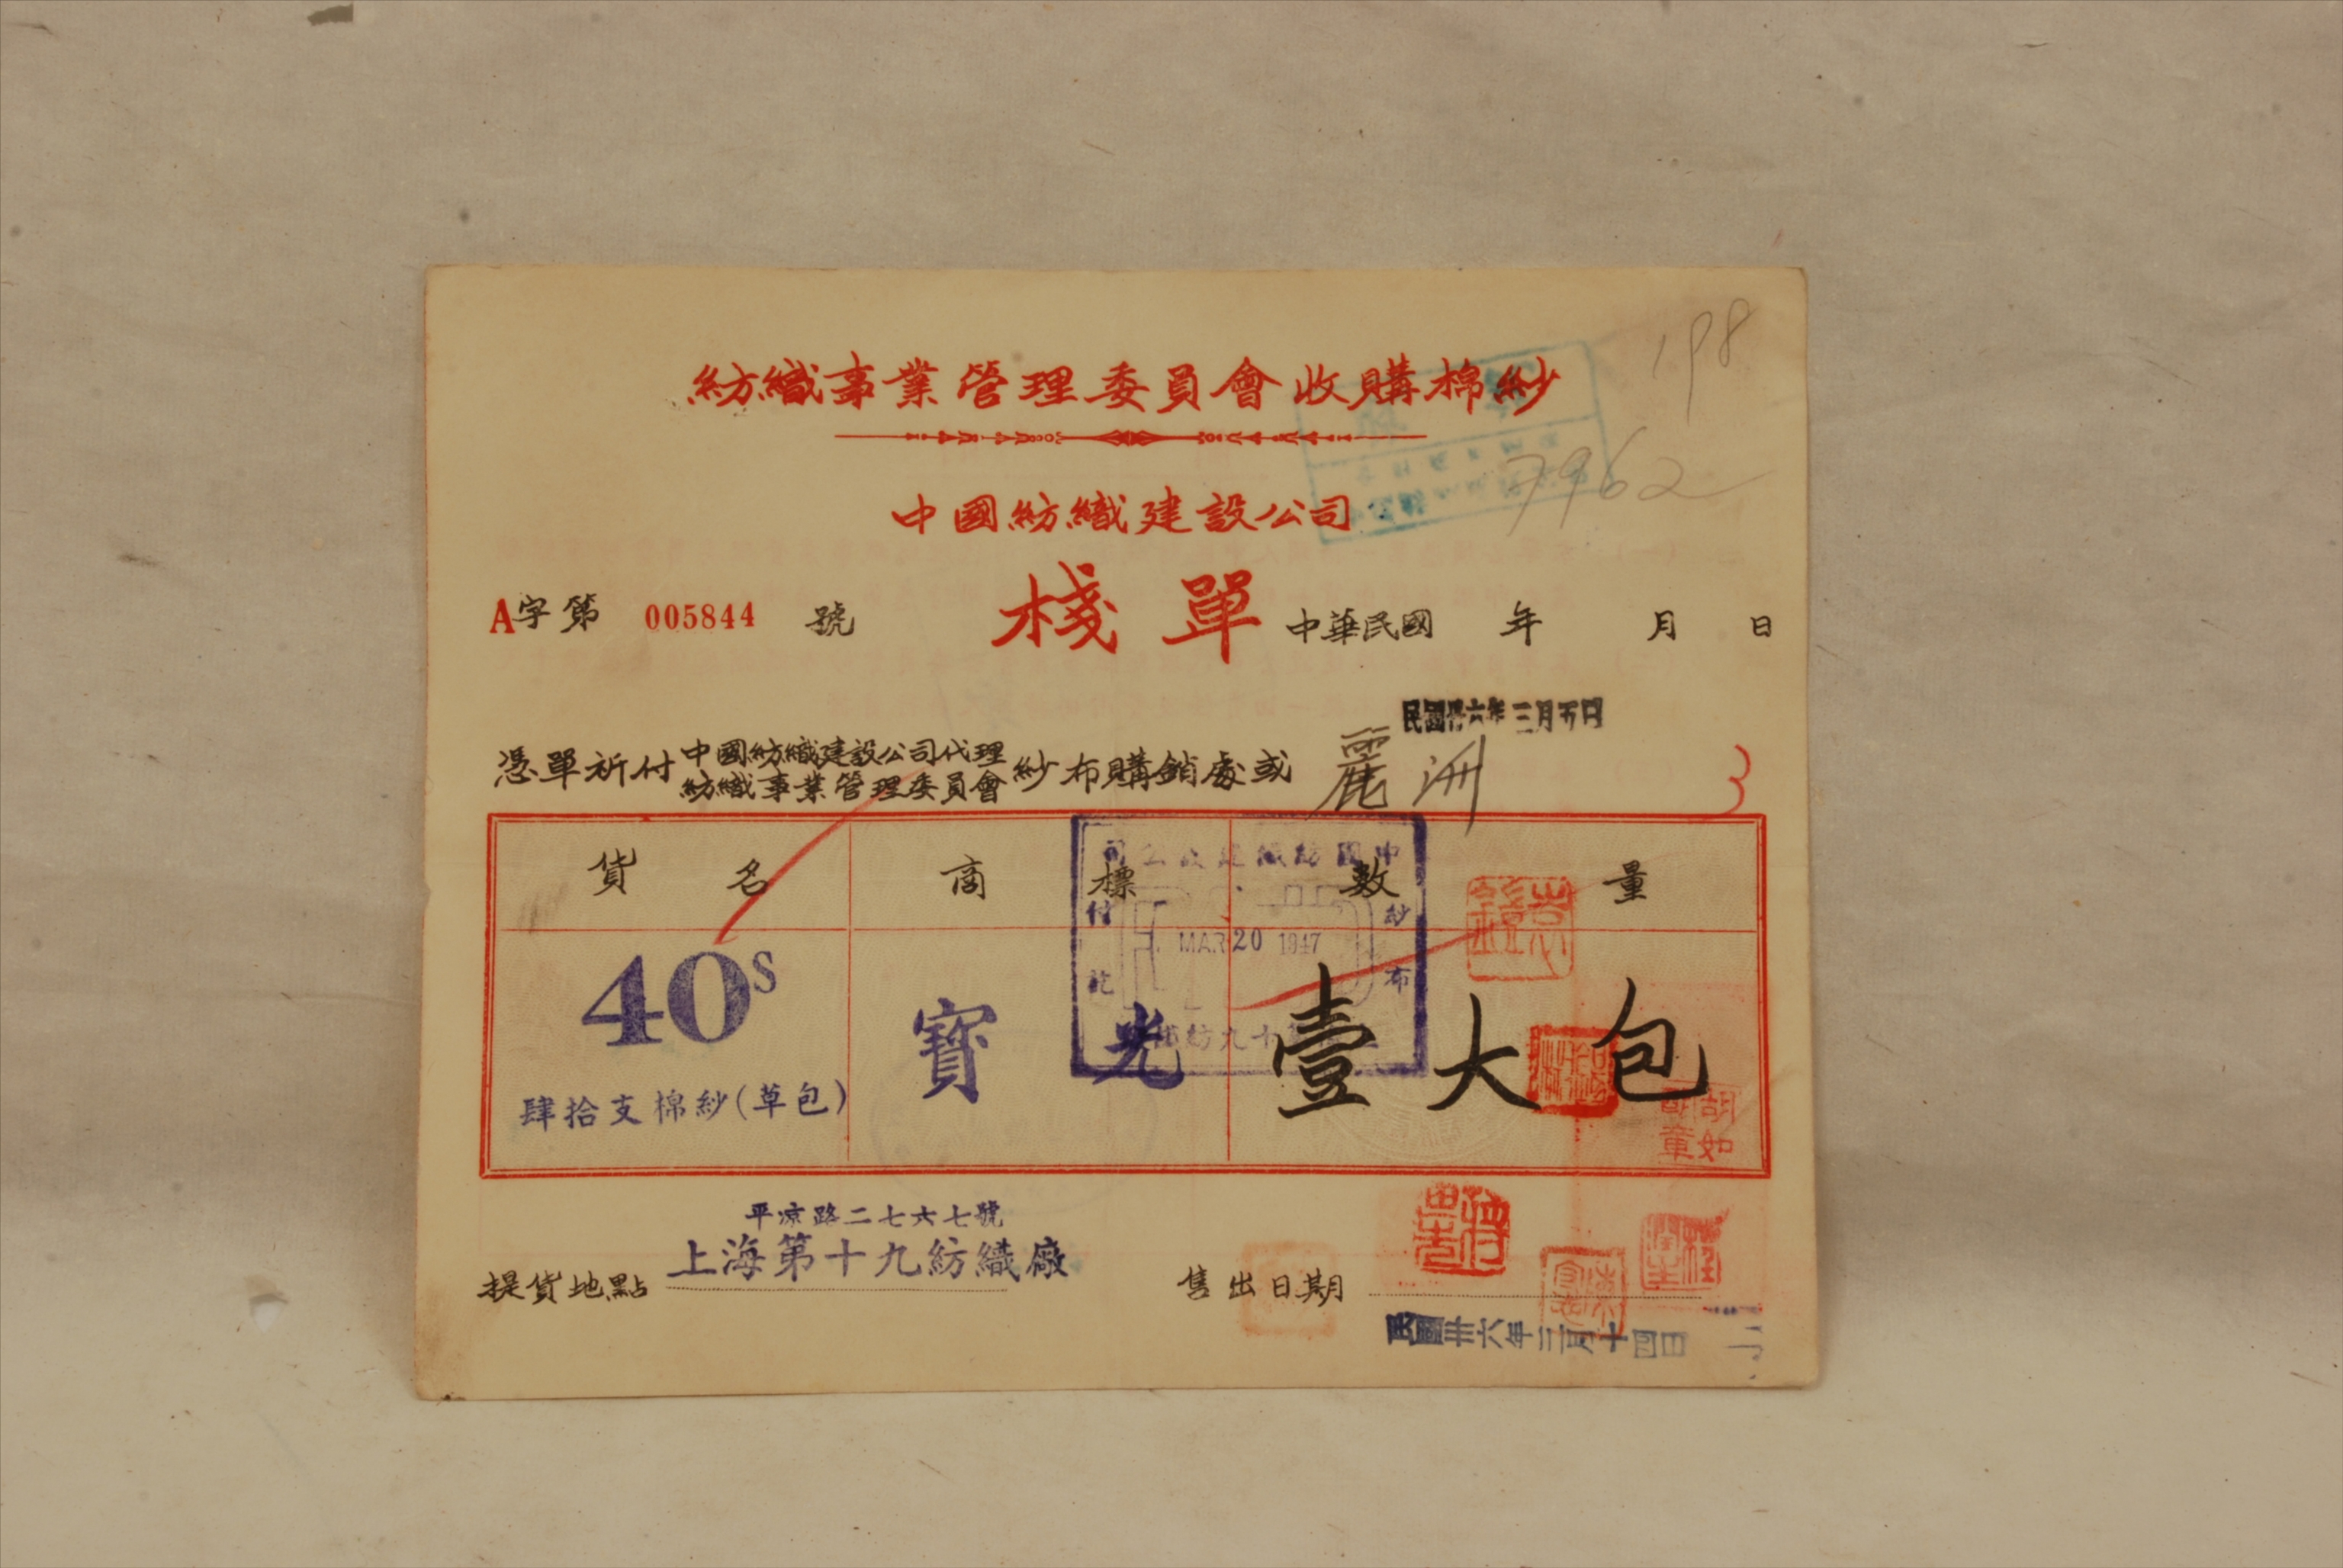 紡織事業管理委員會收購棉紗
198
7962
中國紡織建設公司
A字第 005844 號 棧單 中華民國 年 月 日
民國卅六年三月五日
憑單祈付 中國紡織建設公司代理 紡織事業管理委員會 紗布購銷處或 麗洲
3
貨名 商標 數量
中國紡織建設公司
紗布
付訖
MAR 20 1947
十九紡
40S
肆拾支棉紗(草包)
寶光
壹大包
胡如
章
平凉路二七六七號
上海第十九紡織廠
提貨地點
售出日期
民國卅六年三月十四日